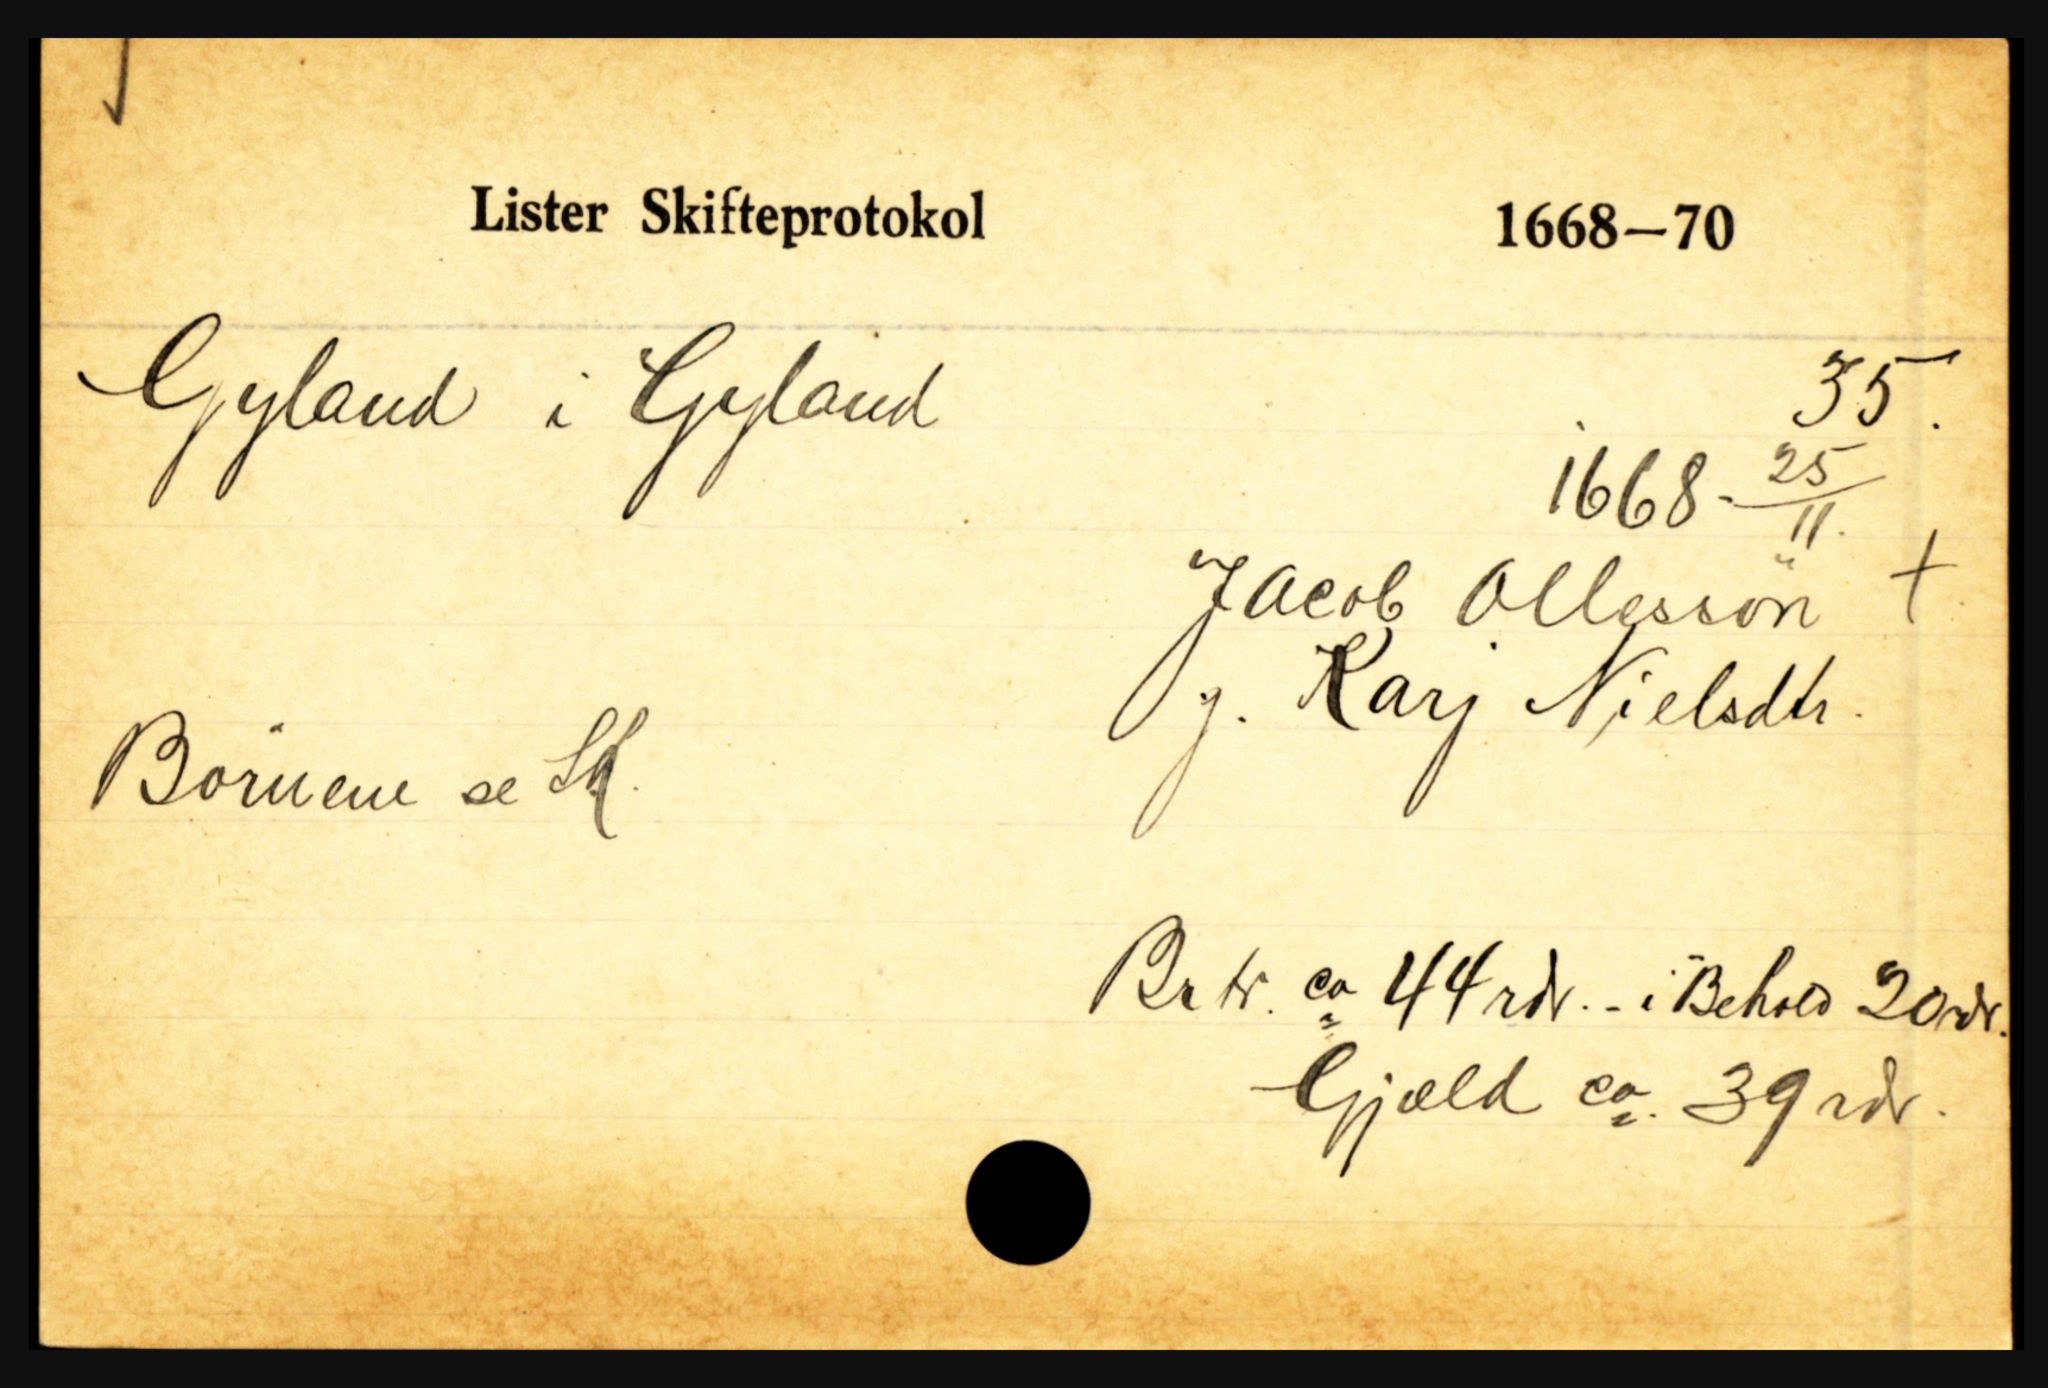 Lister Skifteprotokol 1668—70
Gyland i Gyland 35.
1668 - 25/11.
Jacob Ollessön +
g. Karj Nielsdtr.
Börnene se Sk.
Brto. ca 44 rdr. - i Behold 20 rdr.
Gjæld ca. 39 rdr.